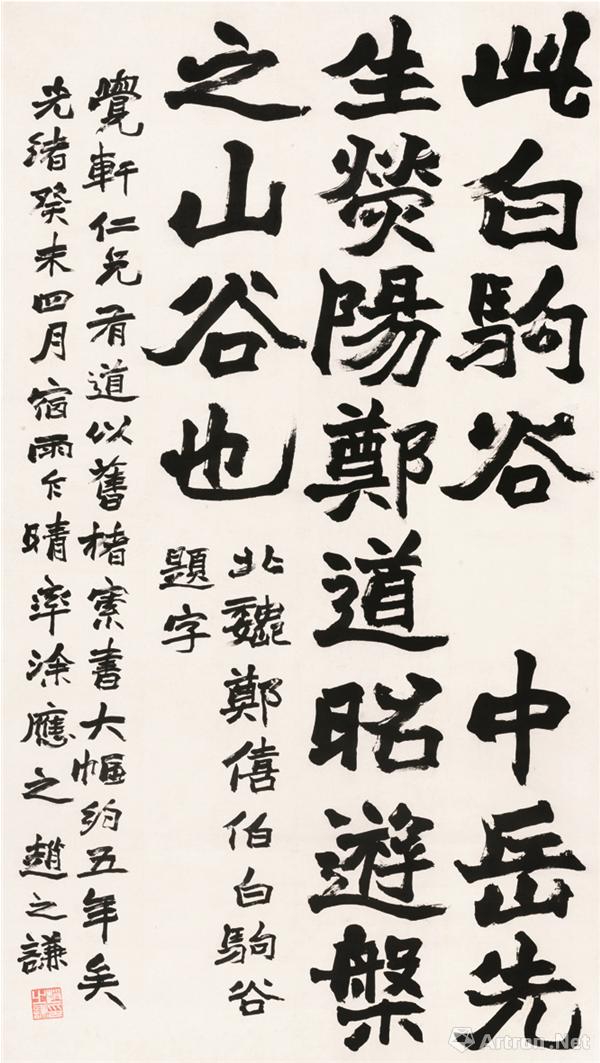 此白駒谷 中岳先
生熒陽鄭道昭遊槃
之山谷也
北魏鄭僖伯白駒谷
題字
覺軒仁兄有道以舊楮索書大幅約五年矣
光緒癸未四月宿雨乍晴率涂應之趙之謙
Artron.Net